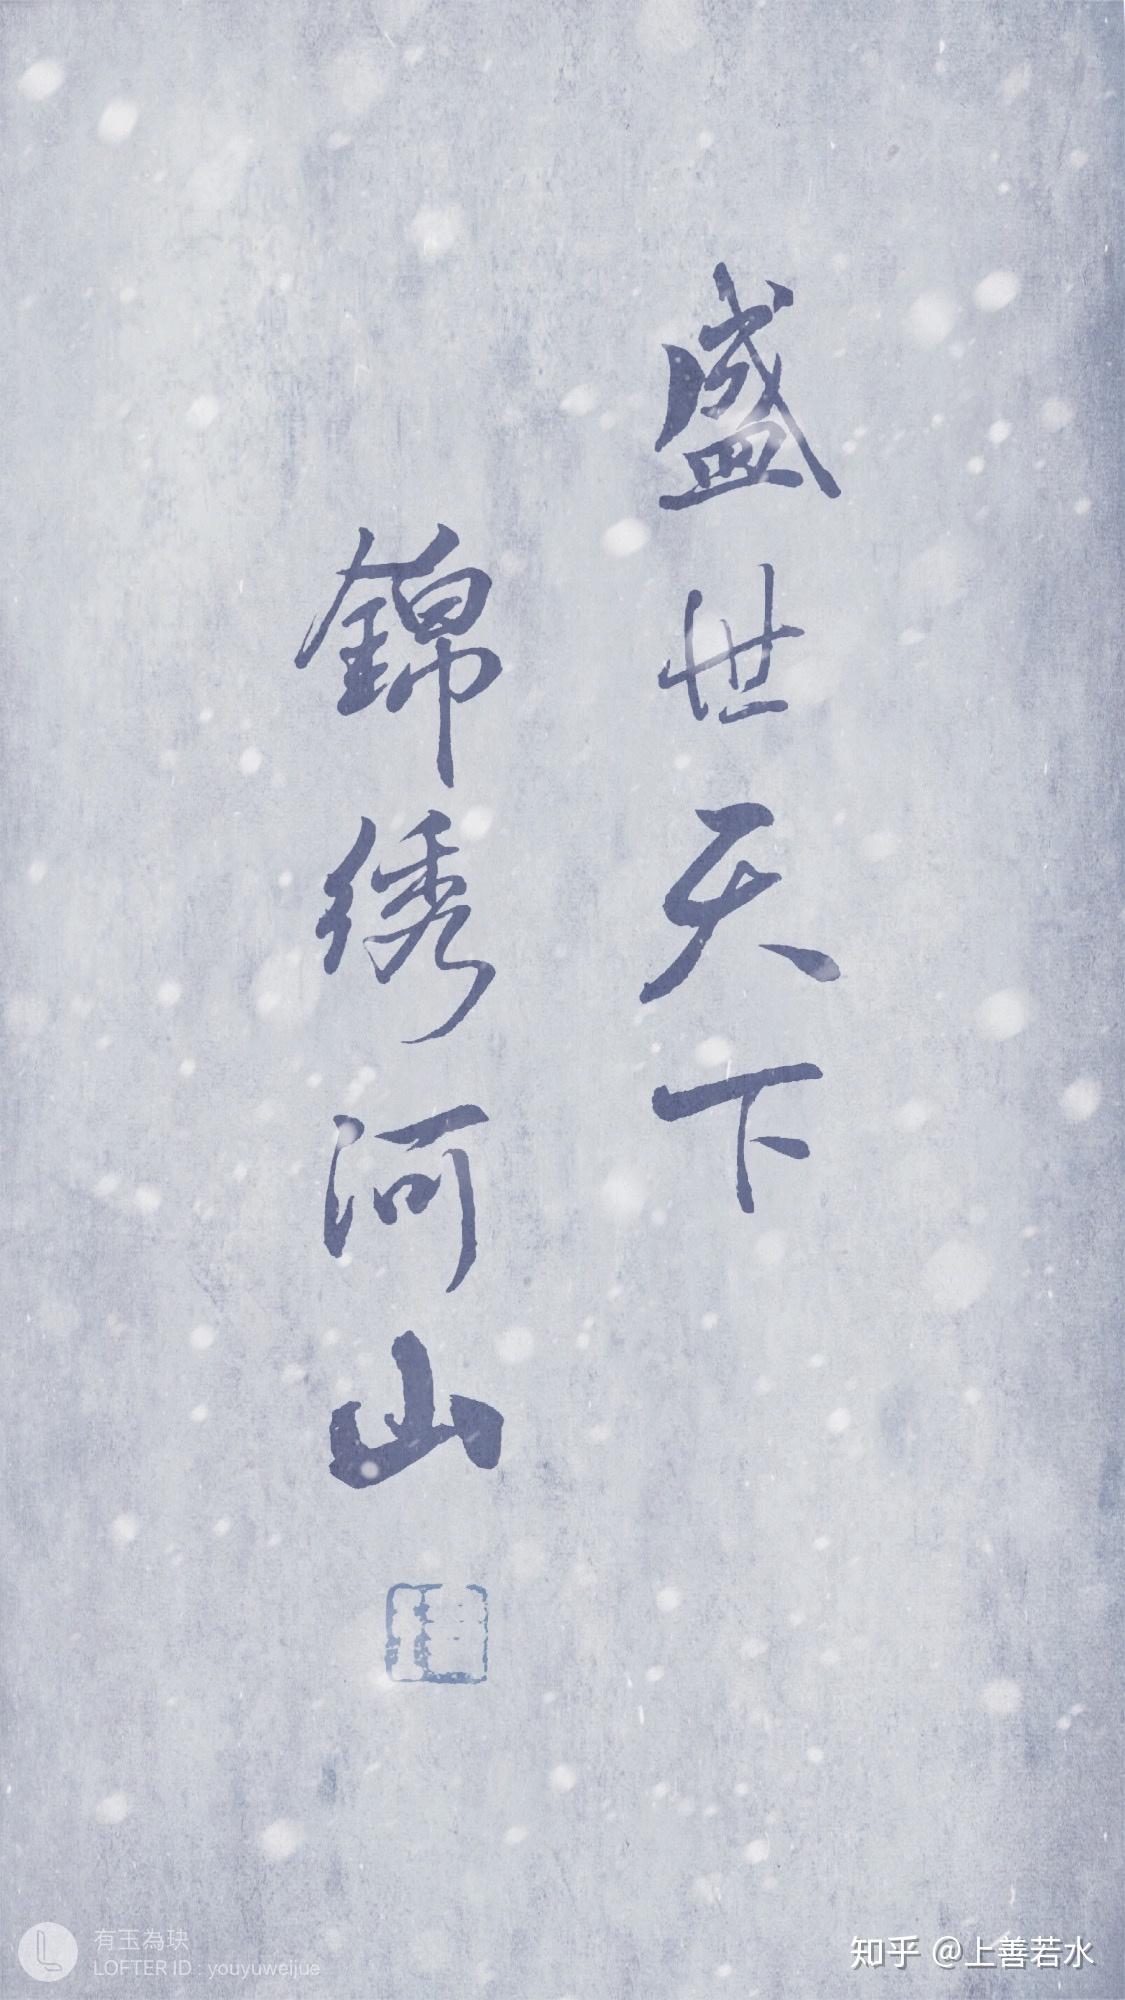 盛世天下
錦绣河山
有玉為玦
LOFTER ID : youyuweijue
知乎 @上善若水